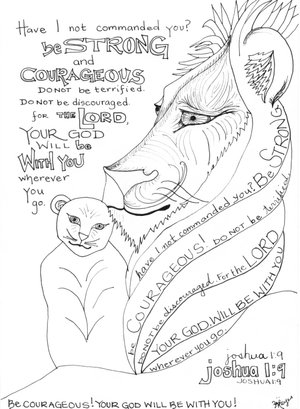 Have I not commanded you?
be STRONG
and
COURAGEOUS
DO NOT be terrified.
DO NOT be discouraged.
for THE LORD,
YOUR GOD
WILL be
WITH YOU
wherever
you
go.
have I not commanded you? Be STRONG
be COURAGEOUS! DO NOT be terrified.
DO NOT be discouraged. For the LORD
YOUR GOD WILL BE WITH YOU
wherever you go.
joshua 1:9
joshua 1:9
JOSHUA 1:9
Be COURAGEOUS! YOUR GOD WILL BE WITH YOU!